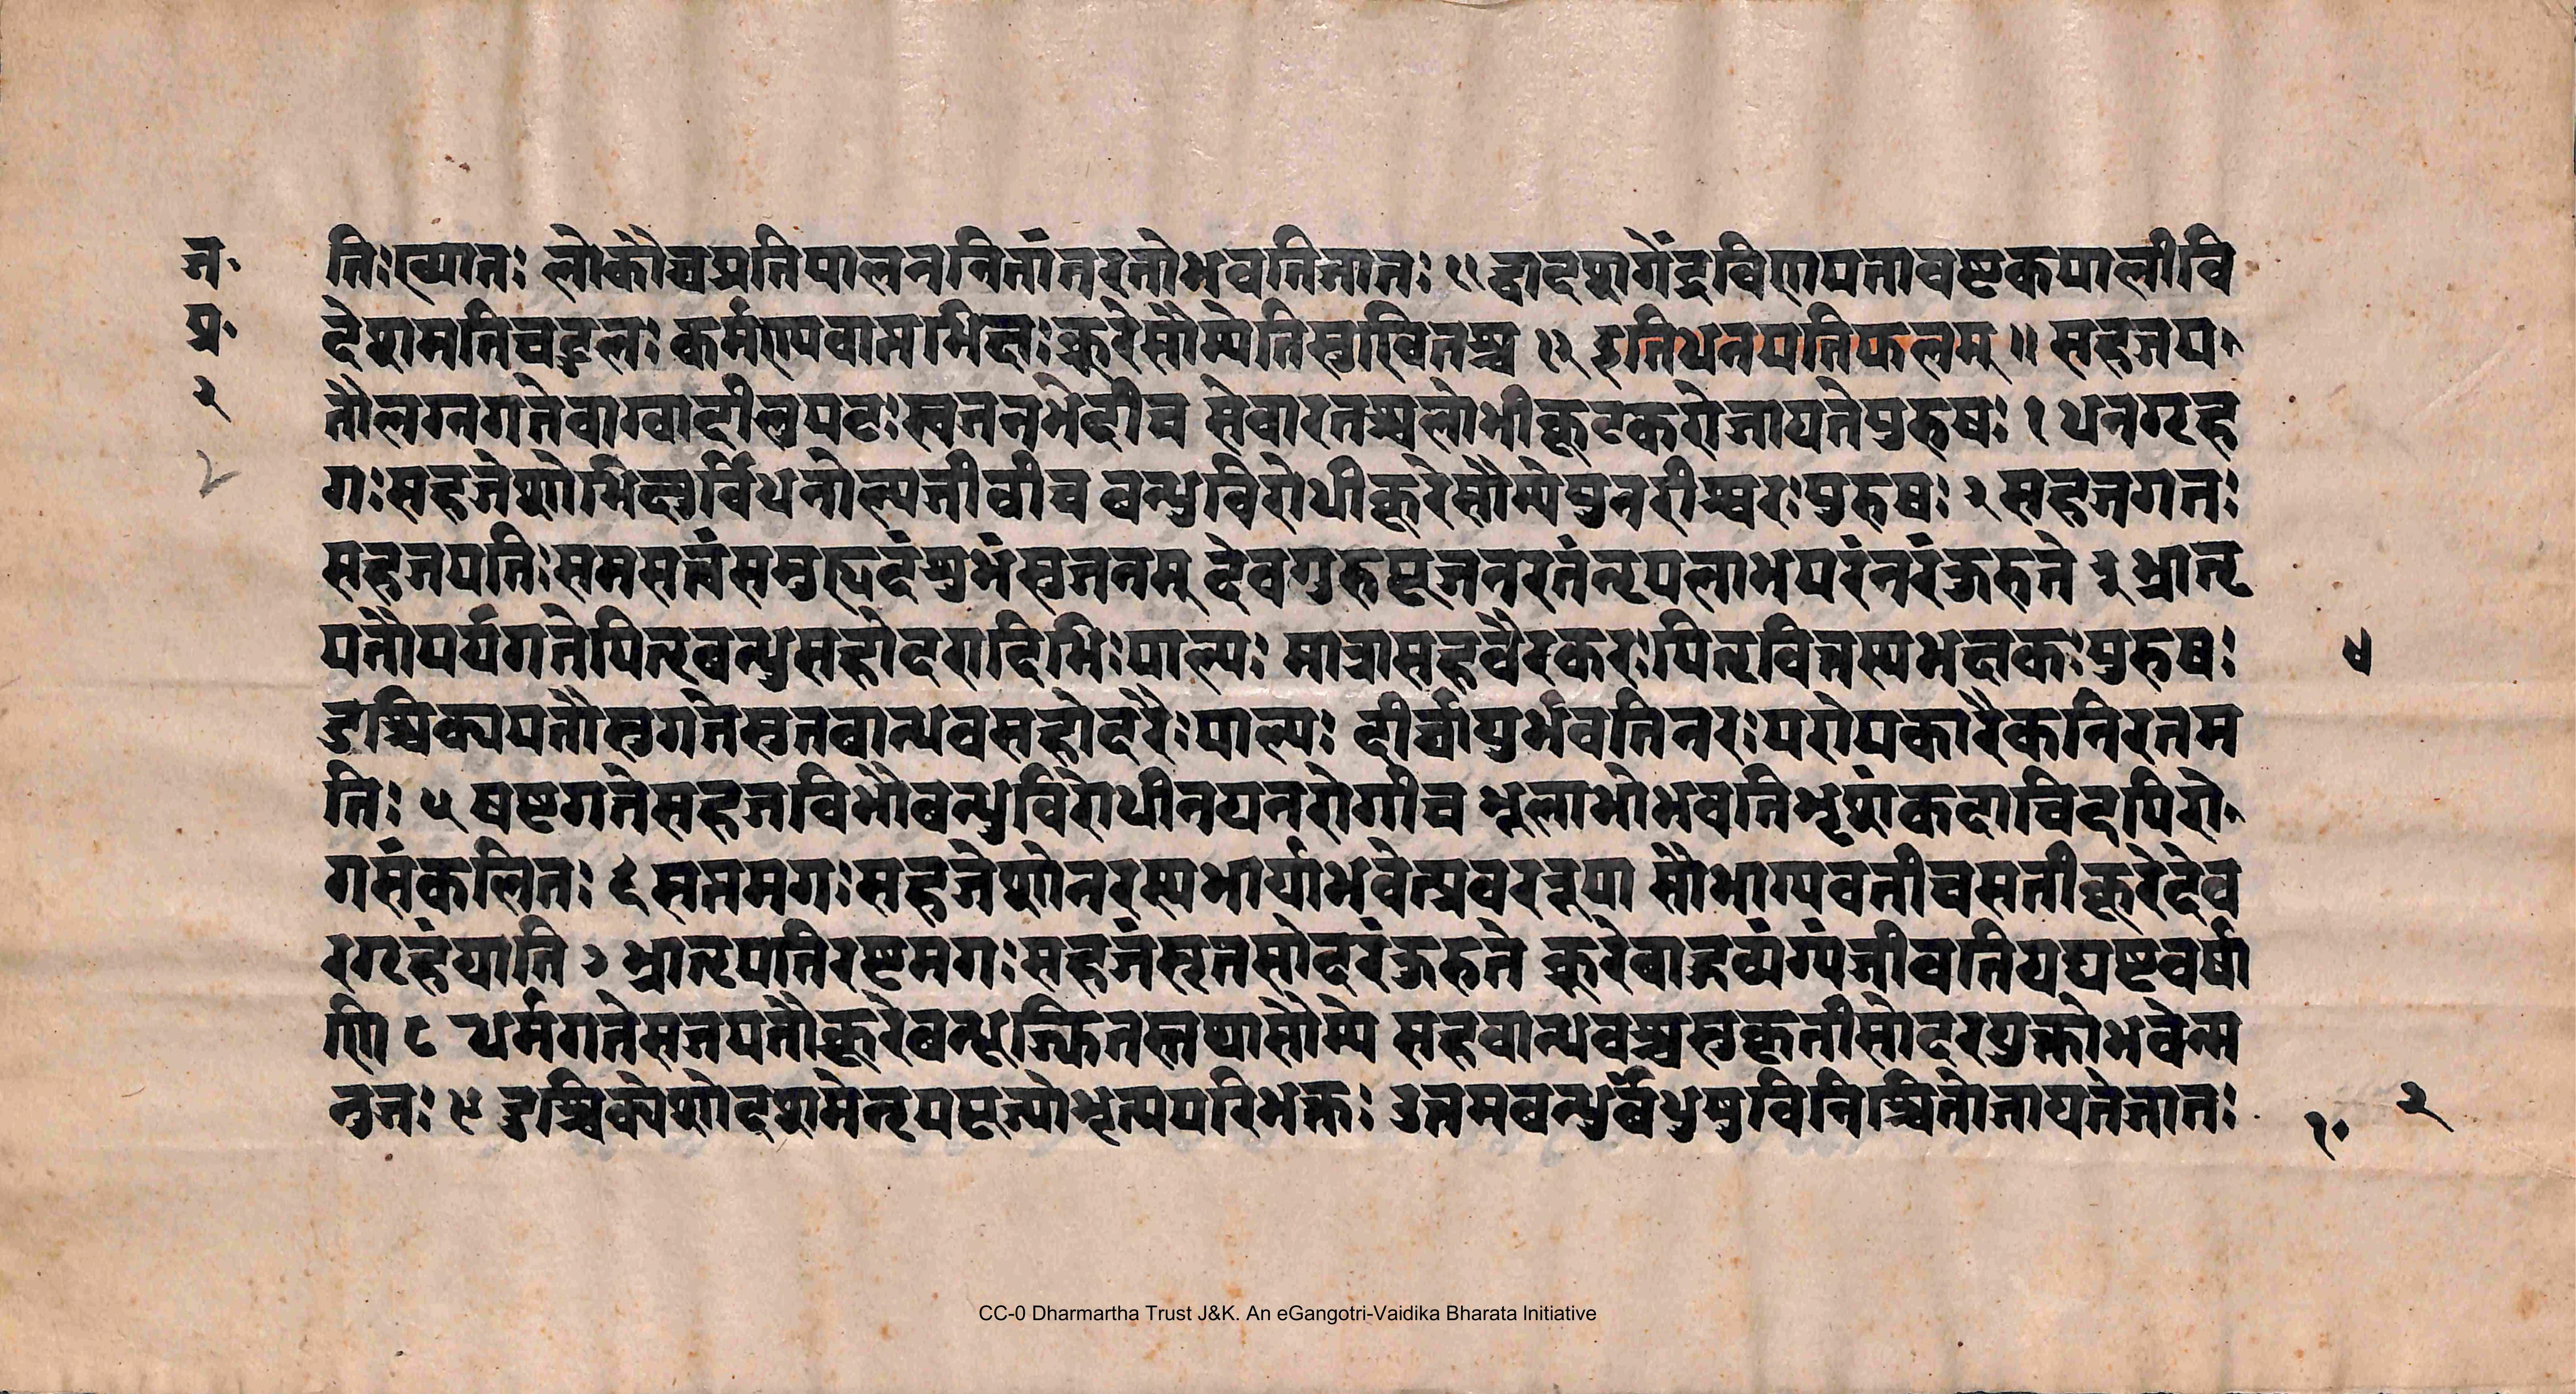 ज॰
प्र॰
२
तिःख्यातः लोकौघप्रतिपालननितांतरतोभवतिजातः ११ द्वादशगेद्रविणपतावष्टकपालीवि
देशमतिचटुलः कर्मण्यवामभिक्षः क्रूरेसौम्येतिसुखितश्च १२ इतिधनपतिफलम् ॥ सहजप
तौलग्नगतेवाग्वादीलंपटः स्वजनभेदीच सेवारतश्चलोभीकूटकरोजायतेपुरुषः १ धनगृह
गः सहजेशोभिक्षुर्विधनोल्पजीवीच बन्धुविरोधीक्रूरेसौम्येपुनरीश्वरः पुरुषः २ सहजगतः
सहजपतिः समसत्त्वंसमुहृदंशुभंसुजनम् देवगुरुपूजनरतंनृपलाभपरंनरंकुरुते ३ भ्रातृ
पतौपर्यगतेपितृबन्धुसहोदरादिभिः पाल्यः मात्रासहवैरकरः पितृवित्तस्यभक्षकः पुरुषः
४
दुश्चिक्यपतौसुगतेसुतबान्धवसहोदरैः पाल्यः दीर्घायुर्भवतिनरः परोपकारैकनिरतम
तिः ५ षष्टगतेसहजविभौबन्धुविरोधीनयनरोगीच भूलाभोभवतिभृशंकदाचिदपिरो
गसंकलितः ६ सप्तमगः सहजेशोनरस्यभार्याभवेत्प्रवररूपा सौभाग्यवतीचसतीक्रूरेदेव
रगृहंयाति ७ भ्रातृपतिरष्टमगः सहजंसृतसोदरंकुरुते क्रूरेबाहुव्यंग्यंजीवतियद्यष्टवर्षा
णि ८ धर्मगतेसजपतौक्रूरेबन्धूज्झितस्तथासौम्ये सहबान्धवश्चसुकृतीसोदरयुक्तोभवेन्म
नुजः ९ दुश्चिक्येशोदशमेनृपपूज्योभृत्यपरिभक्तः उत्तमबन्धुर्बंधुषुविनिश्चितोजायतेजातः
१०
२
CC-0 Dharmartha Trust J&K. An eGangotri-Vaidika Bharata Initiative